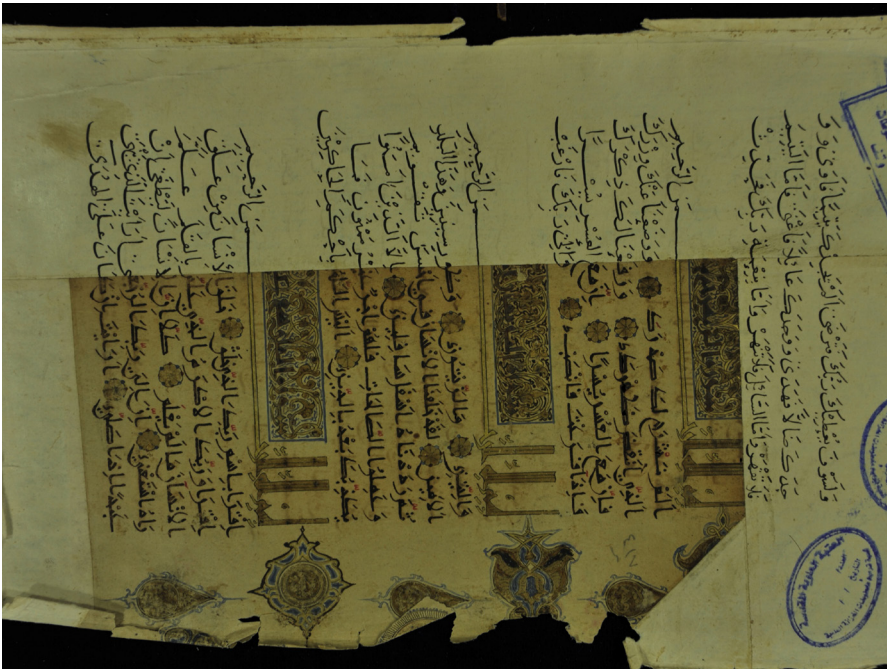 وَلَسَوْفَ يُعْطِيكَ رَبُّكَ فَتَرْضَى أَلَمْ يَجِدْكَ يَتِيمًا فَآوَى وَوَ
جَدَكَ ضَالًّا فَهَدَى وَوَجَدَكَ عَائِلًا فَأَغْنَى فَأَمَّا الْيَتِيمَ
فَلَا تَقْهَرْ وَأَمَّا السَّائِلَ فَلَا تَنْهَرْ وَأَمَّا بِنِعْمَةِ رَبِّكَ فَحَدِّثْ
بسم الله الرَّحْمَنِ الرَّحِيمِ
أَلَمْ نَشْرَحْ لَكَ صَدْرَكَ وَوَضَعْنَا عَنْكَ وِزْرَكَ
الَّذِي أَنْقَضَ ظَهْرَكَ وَرَفَعْنَا لَكَ ذِكْرَكَ
فَإِنَّ مَعَ الْعُسْرِ يُسْرًا إِنَّ مَعَ الْعُسْرِ يُسْرًا
فَإِذَا فَرَغْتَ فَانْصَبْ وَإِلَى رَبِّكَ فَارْغَبْ
بسم الله الرَّحْمَنِ الرَّحِيمِ
وَالتِّينِ وَالزَّيْتُونِ وَطُورِ سِينِينَ وَهَذَا الْبَلَدِ
الْأَمِينِ لَقَدْ خَلَقْنَا الْإِنْسَانَ فِي أَحْسَنِ تَقْوِيمٍ
ثُمَّ رَدَدْنَاهُ أَسْفَلَ سَافِلِينَ إِلَّا الَّذِينَ آمَنُوا
وَعَمِلُوا الصَّالِحَاتِ فَلَهُمْ أَجْرٌ غَيْرُ مَمْنُونٍ فَمَا
يُكَذِّبُكَ بَعْدُ بِالدِّينِ أَلَيْسَ اللَّهُ بِأَحْكَمِ الْحَاكِمِينَ
بسم الله الرَّحْمَنِ الرَّحِيمِ
اقْرَأْ بِاسْمِ رَبِّكَ الَّذِي خَلَقَ خَلَقَ الْإِنْسَانَ مِنْ عَلَقٍ
اقْرَأْ وَرَبُّكَ الْأَكْرَمُ الَّذِي عَلَّمَ بِالْقَلَمِ عَلَّمَ
الْإِنْسَانَ مَا لَمْ يَعْلَمْ كَلَّا إِنَّ الْإِنْسَانَ لَيَطْغَى أَنْ
رَآهُ اسْتَغْنَى إِنَّ إِلَى رَبِّكَ الرُّجْعَى أَرَأَيْتَ الَّذِي يَنْهَى
عَبْدًا إِذَا صَلَّى أَرَأَيْتَ إِنْ كَانَ عَلَى الْهُدَى